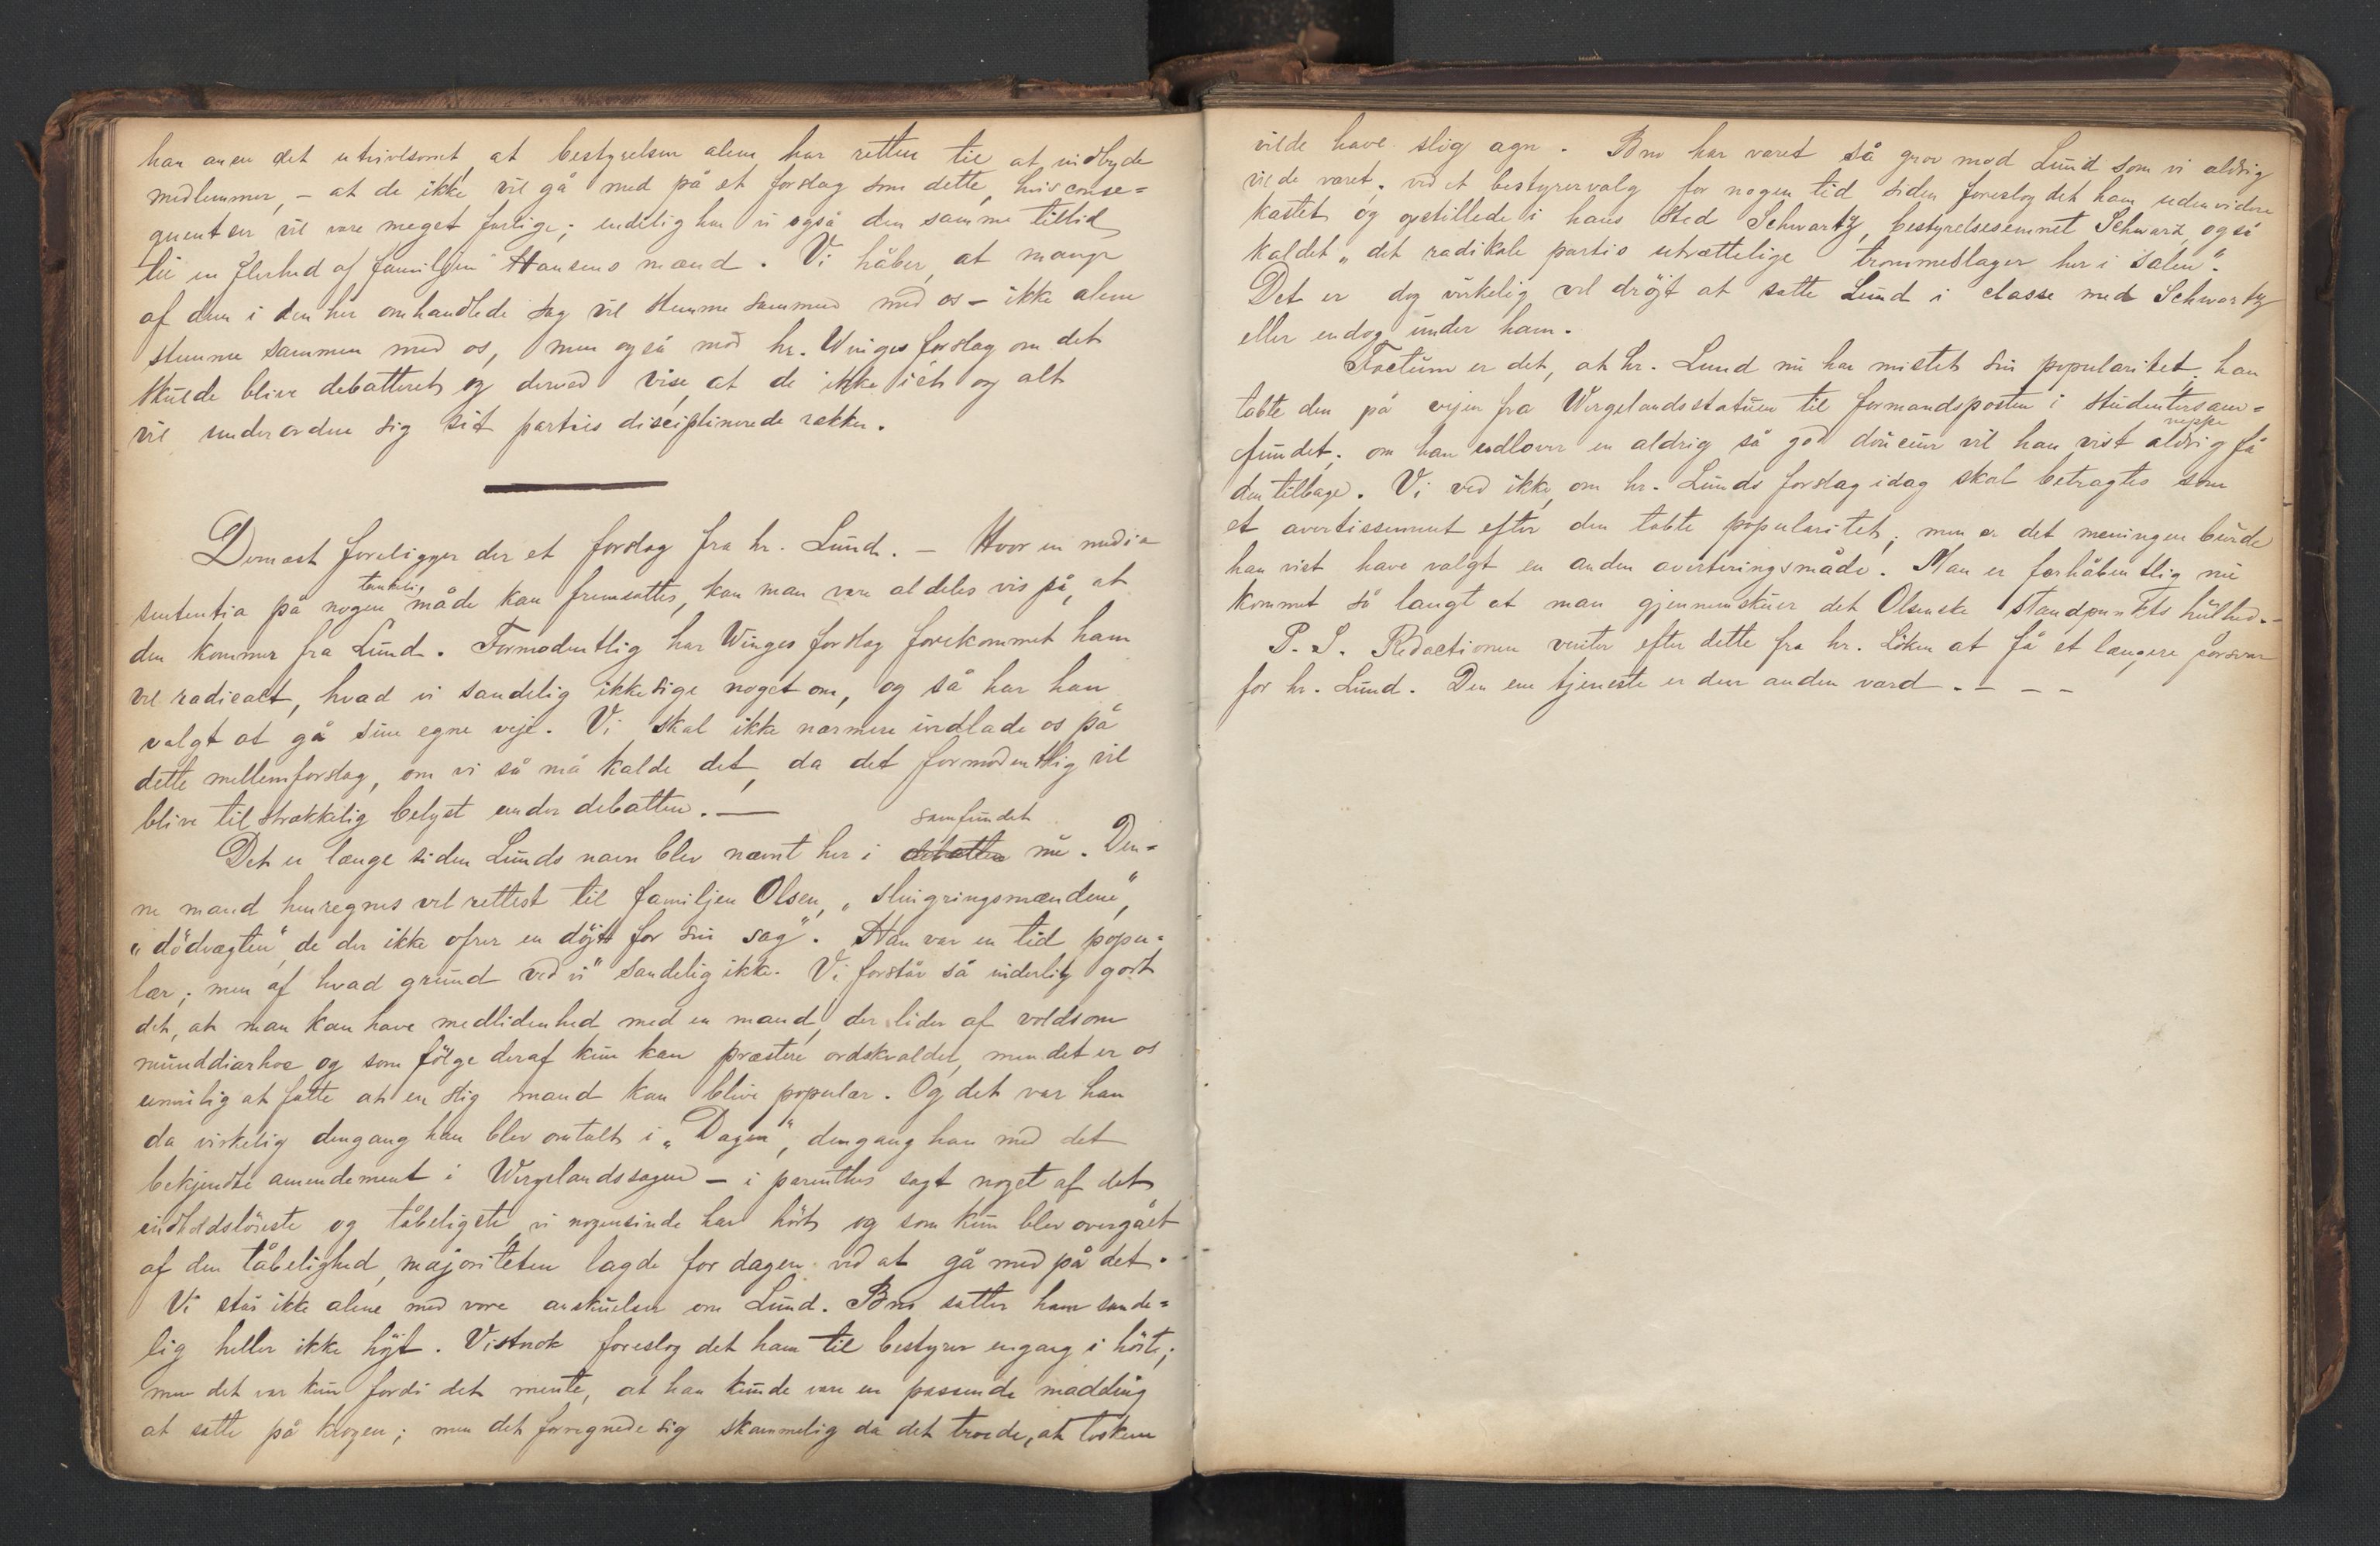 har anseet det utvivlsomt, at bestyrelsen alene har retten til at indbyde
medlemmer, – at de ikke vil gå med på et forslag som dette, hvis conse=
quentser vil være meget farlige; endelig har vi også den samme tillid
til en flerhed af familjen Hansens mænd. Vi håber, at mange
af dem i den her omhandlede sag vil stemme sammen med os – ikke alene
stemme sammen med os, men også mod hr. Winges forslag om det
skulde blive debatteret og derved vise, at de ikke i ét og alt
vil underordne sig sit partis disciplinerede rækker.
Dernæst foreligger der et forslag fra hr. Lund. – Hvor en media
sententia på nogen tænkelig måde kan fremsættes, kan man være aldeles vis på, at
den kommer fra Lund. Formodentlig har Winges forslag forekommet ham
vel radicalt, hvad vi sandelig ikke sige noget om, og så har han
valgt at gå sine egne veje. Vi skal ikke nærmere indlade os på
dette mellemforslag, om vi så må kalde det, da det formodentlig vil
blive tilstrækkelig belyst under debatten. –
Det er længe siden Lunds navn blev nævnt her i debatten samfundet nu. Den=
ne mand henregnes vel rettest til familjen Olsen, „slingringsmændene“,
„dödvægten“, de der ikke ofrer en döjt for sin sag“. Han var en tid popu=
lær; men af hvad grund ved vi sandelig ikke. Vi forstår så inderlig godt
det, at man kan have medlidenhed med en mand, der lider af voldsom
munddiarhoe og som fölge deraf kun kan præstere ordskvalder, men det er os
umulig at fatte at en slig mand kan blive populær. Og det var han
da virkelig dengang han blev omtalt i „Dagen“, dengang han med det
bekjendte amendement i Wergelandssagen – i parenthes sagt noget af det
indholdslöseste og tåbeligste, vi nogensinde har hört og som kun blev overgået
af den tåbelighed, majoriteten lagde for dagen ved at gå med på det.
Vi står ikke alene med vore anskuelser om Lund. Bno sætter ham sande=
lig heller ikke höjt. Vistnok foreslog det ham til bestyrer engang i höst;
men det var kun fordi det mente, at han kunde være en passende madding
at sætte på krogen; men det forregnede sig skammelig da det troede, at torsken
vilde have slig agn. Bno har været så grov mod Lund som vi aldrig
vilde været; ved et bestyrervalg for nogen tid siden foreslog det ham uden videre
kastet og opstillede i hans sted Schwartz, bestyrelsesemnet Schwarz, også
kaldet „det radikale partis utrættelige trommeslager her i salen“.
Det er dog virkelig vel dröjt at sætte Lund i classe med Schwartz
eller endog under ham.
Factum er det, at hr. Lund nu har mistet sin popularitet, han
tabte den på vejen fra Wergelandsstatuen til formandsposten i studentersam=
fundet; om han udlover en aldrig så god douceur vil han vist aldrig neppe få
den tilbage. Vi ved ikke, om hr. Lunds forslag idag skal betragtes som
et avertissement efter den tabte popularitet; men er det meningen burde
han vist have valgt en anden averteringsmåde. Man er forhåbentlig nu
kommet så langt at man gjennemskuer det Olsenske standpunkts hulhed. –
P. S. Redactionen venter efter dette fra hr. Löken at få et længere forsvar
for hr. Lund. Den ene tjeneste er den anden værd. – – –